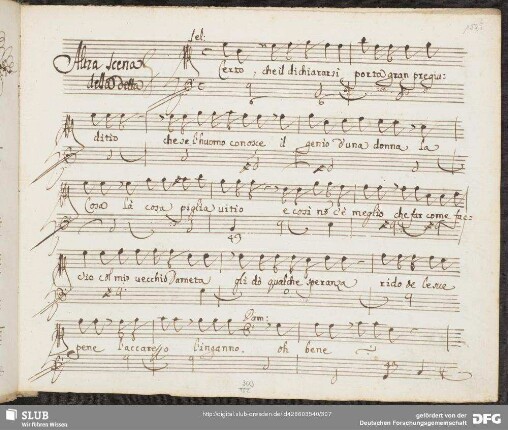 Sel:
Altra Scena
della detta
Certo, che il dichiararsi porta gran pregiu:
ditio che se l'huomo conosce il genio d'una donna la
Cosa la cosa piglia uitio e così nō c'è meglio che far come fac:
cio col mio vecchio Dameta gli dò qualche speranza rido de le sue
Dam:
pene l'accarezzo l'inganno. oh bene
SLUB
Wir führen Wissen.
http://digital.slub-dresden.de/id426603540/307
gefördert von der
Deutschen Forschungsgemeinschaft
DFG